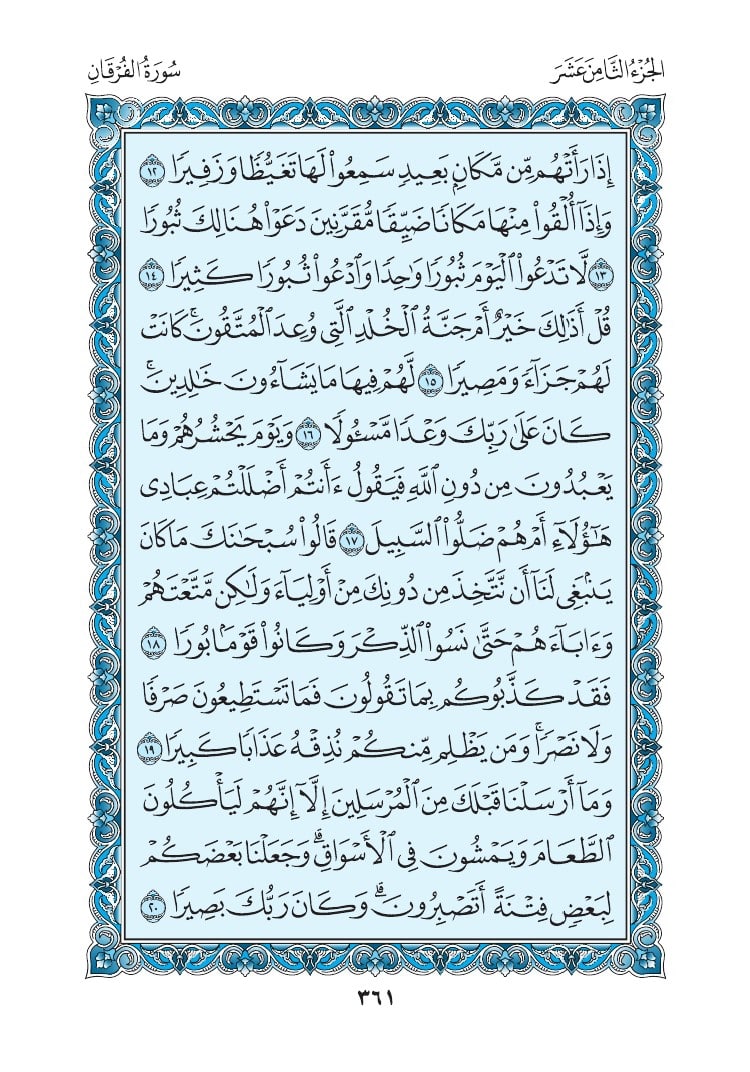 الجزء الثامن عشر
سورة الفرقان
إِذَا رَأَتْهُم مِّن مَّكَانٍۭ بَعِيدٖ سَمِعُواْ لَهَا تَغَيُّظٗا وَزَفِيرٗا ١٢
وَإِذَآ أُلۡقُواْ مِنۡهَا مَكَانٗا ضَيِّقٗا مُّقَرَّنِينَ دَعَوۡاْ هُنَالِكَ ثُبُورٗا
١٣ لَّا تَدۡعُواْ ٱلۡيَوۡمَ ثُبُورٗا وَٰحِدٗا وَٱدۡعُواْ ثُبُورٗا كَثِيرٗا ١٤
قُلۡ أَذَٰلِكَ خَيۡرٌ أَمۡ جَنَّةُ ٱلۡخُلۡدِ ٱلَّتِي وُعِدَ ٱلۡمُتَّقُونَۚ كَانَتۡ
لَهُمۡ جَزَآءٗ وَمَصِيرٗا ١٥ لَّهُمۡ فِيهَا مَا يَشَآءُونَ خَٰلِدِينَۚ
كَانَ عَلَىٰ رَبِّكَ وَعۡدٗا مَّسۡـُٔولٗا ١٦ وَيَوۡمَ يَحۡشُرُهُمۡ وَمَا
يَعۡبُدُونَ مِن دُونِ ٱللَّهِ فَيَقُولُ ءَأَنتُمۡ أَضۡلَلۡتُمۡ عِبَادِي
هَٰٓؤُلَآءِ أَمۡ هُمۡ ضَلُّواْ ٱلسَّبِيلَ ١٧ قَالُواْ سُبۡحَٰنَكَ مَا كَانَ
يَنۢبَغِي لَنَآ أَن نَّتَّخِذَ مِن دُونِكَ مِنۡ أَوۡلِيَآءَ وَلَٰكِن مَّتَّعۡتَهُمۡ
وَءَابَآءَهُمۡ حَتَّىٰ نَسُواْ ٱلذِّكۡرَ وَكَانُواْ قَوۡمَۢا بُورٗا ١٨
فَقَدۡ كَذَّبُوكُم بِمَا تَقُولُونَ فَمَا تَسۡتَطِيعُونَ صَرۡفٗا
وَلَا نَصۡرٗاۚ وَمَن يَظۡلِم مِّنكُمۡ نُذِقۡهُ عَذَابٗا كَبِيرٗا ١٩
وَمَآ أَرۡسَلۡنَا قَبۡلَكَ مِنَ ٱلۡمُرۡسَلِينَ إِلَّآ إِنَّهُمۡ لَيَأۡكُلُونَ
ٱلطَّعَامَ وَيَمۡشُونَ فِي ٱلۡأَسۡوَاقِۗ وَجَعَلۡنَا بَعۡضَكُمۡ
لِبَعۡضٖ فِتۡنَةً أَتَصۡبِرُونَۗ وَكَانَ رَبُّكَ بَصِيرٗا ٢٠
٣٦١